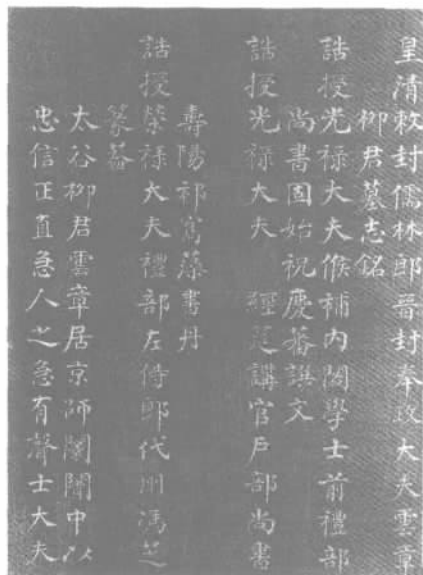 皇清敕封儒林郎晉封奉政大夫雲章
柳君墓志銘
誥授光祿大夫候補內閣學士前禮部
尚書固始祝慶蕃譔文
誥授光祿大夫 經筵講官戶部尚書
壽陽祁寯藻書丹
誥授榮祿大夫禮部左侍郎代州馮芝
篆蓋
太谷柳君雲章居京師闤闠中以
忠信正直急人之急有聲士大夫